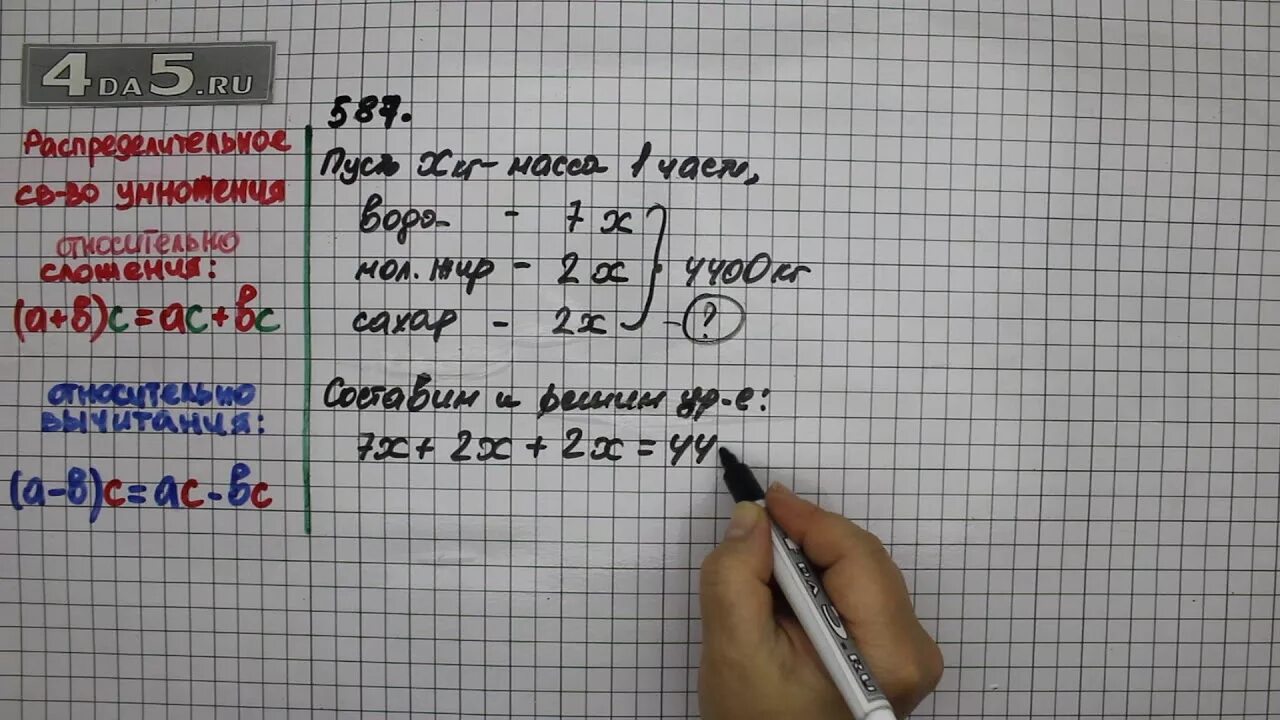 4DA5.RU
Распределительное
св-во умножения
относительно
сложения:
(a+b)c=ac+bc
относительно
вычитания:
(a-b)c=ac-bc
587.
Пусть x кг - масса 1 части,
вода - 7x
мол. жир - 2x 4400 кг
сахар - 2x - ?
Составим и решим ур-е:
7x + 2x + 2x = 44
4DA5.RU